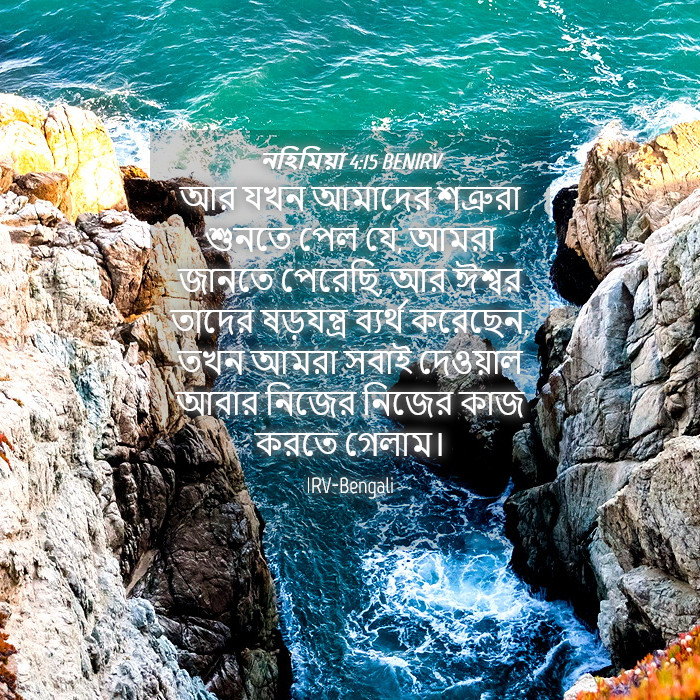 নহিমিয়া 4:15 BENIRV
আর যখন আমাদের শত্রুরা
শুনতে পেল যে, আমরা
জানতে পেরেছি, আর ঈশ্বর
তাদের ষড়যন্ত্র ব্যর্থ করেছেন,
তখন আমরা সবাই দেওয়াল
আবার নিজের নিজের কাজ
করতে গেলাম।
IRV-Bengali